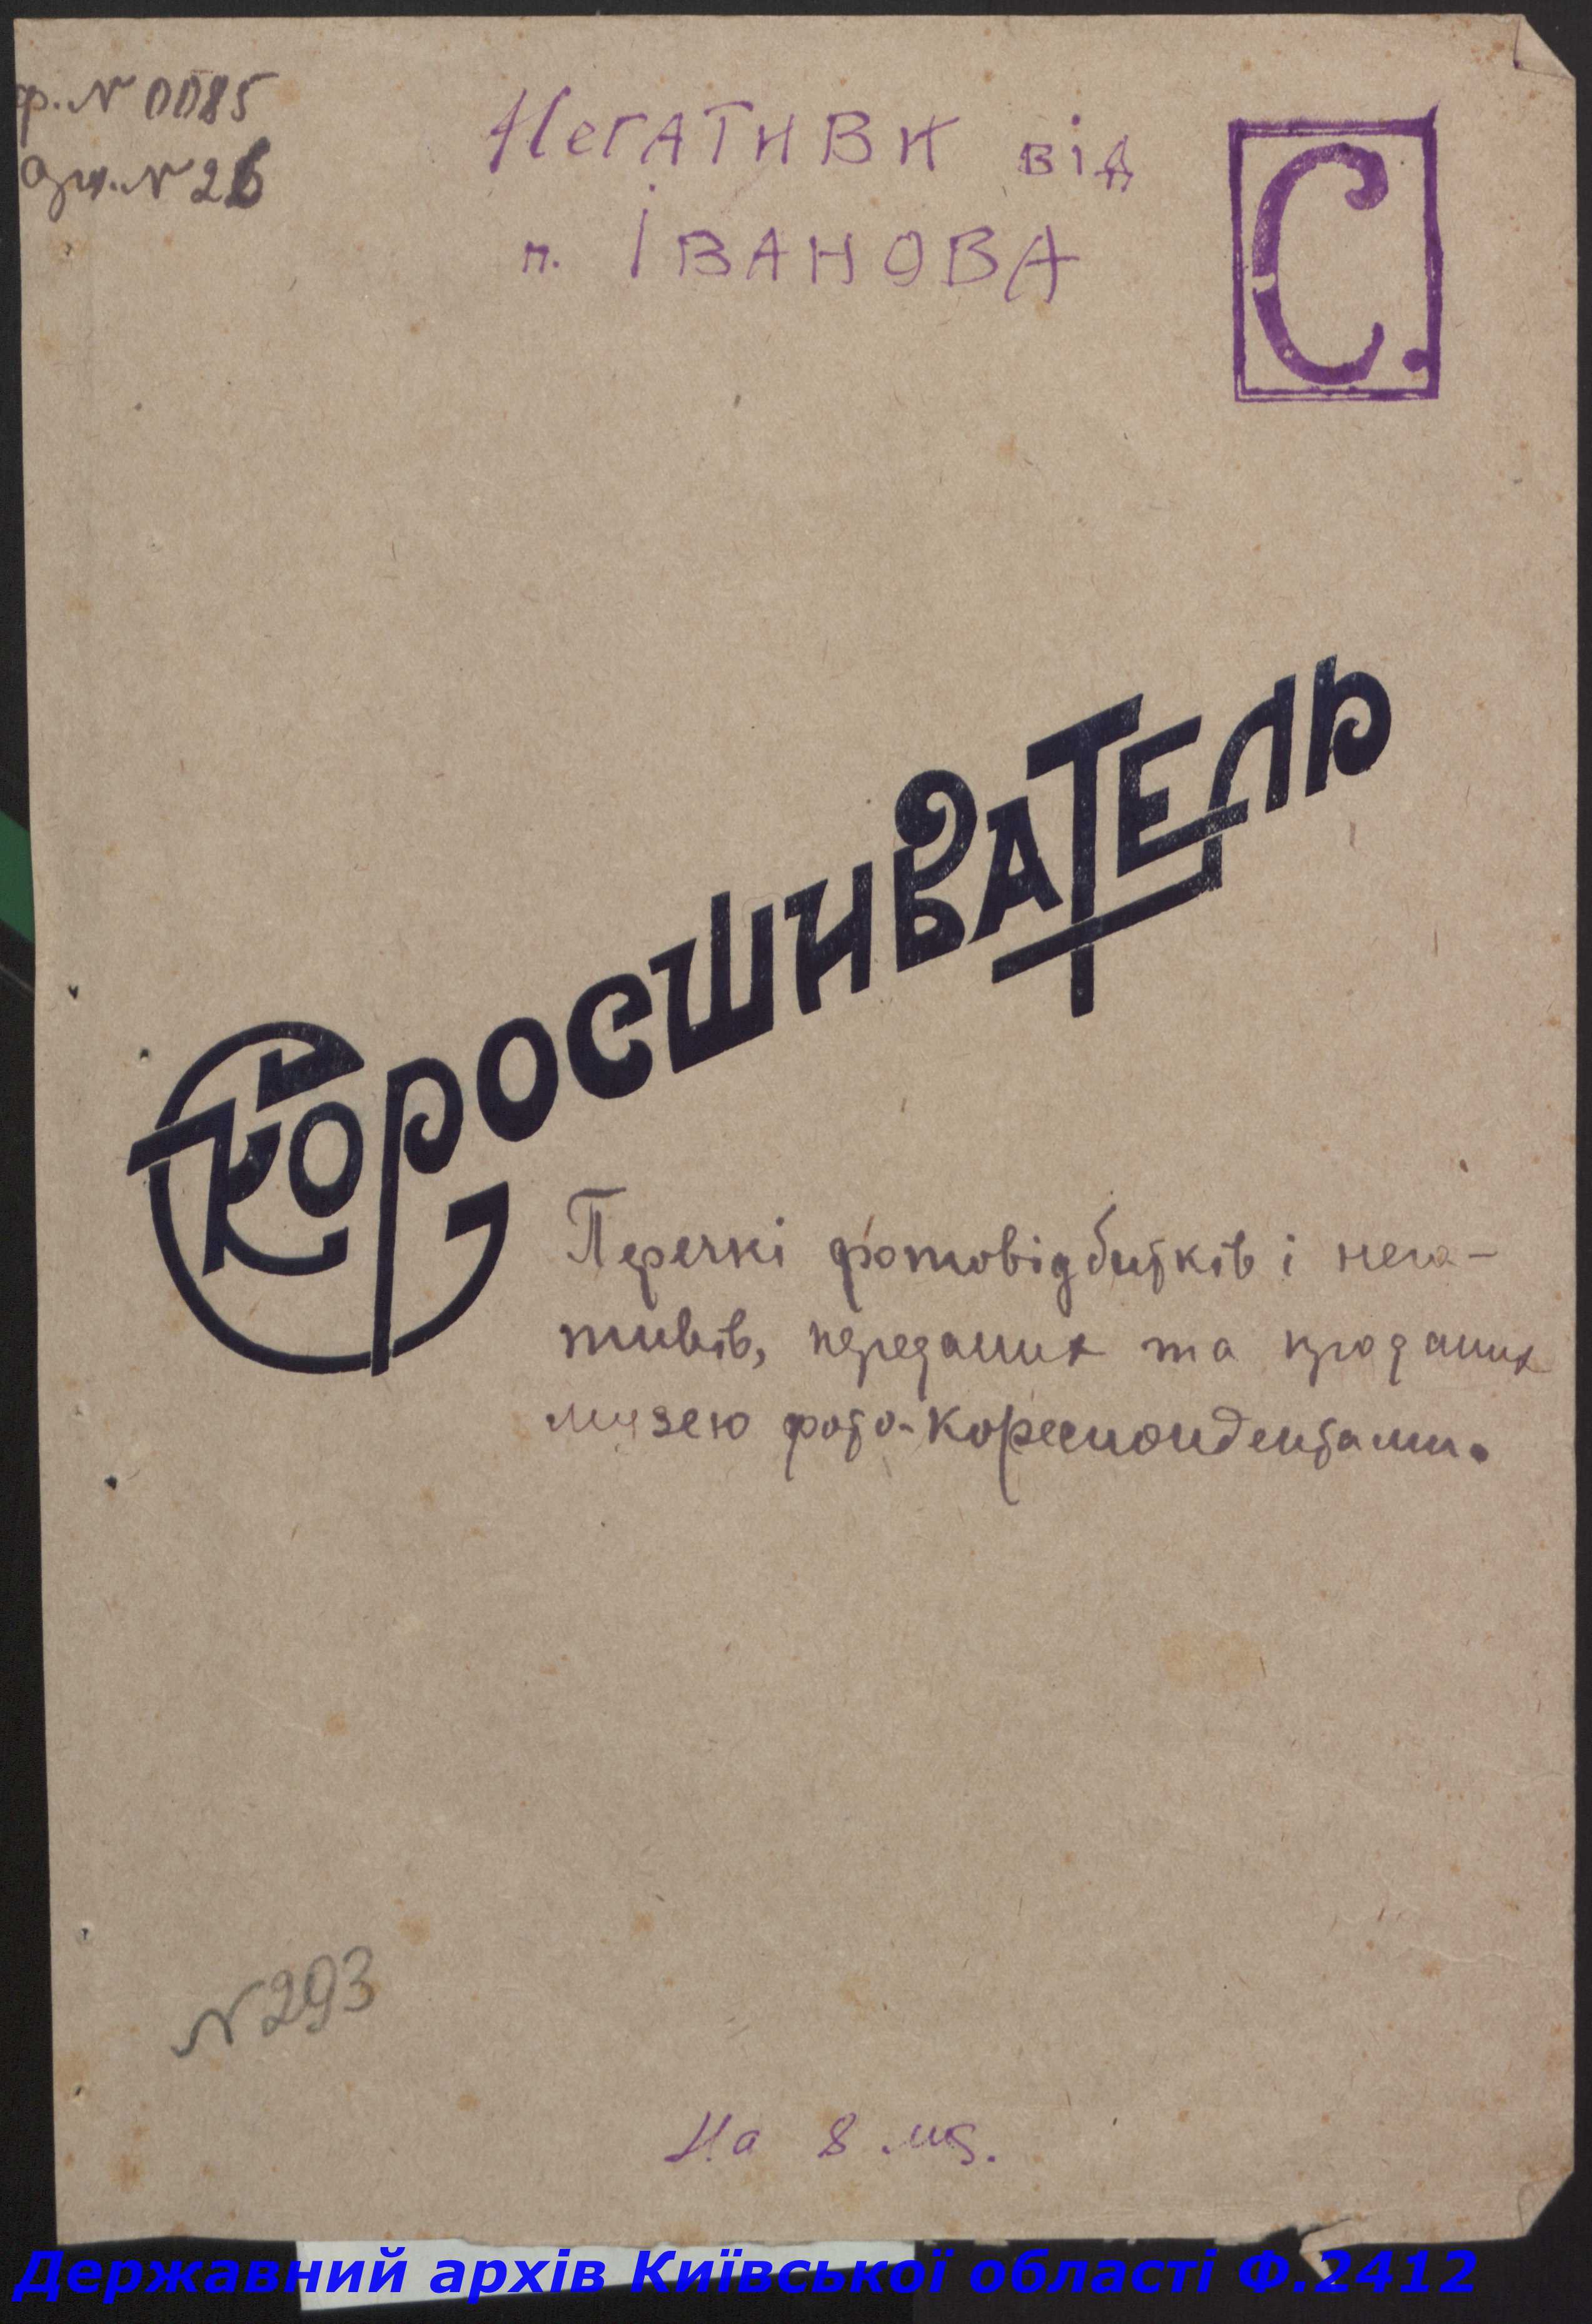 ф. N 0085
Зш. N 26
НегАТИВИ від
п. ІВАНОВА
С.
СКОРОСШИВАТЕЛЬ
Перечкі фотовідбитків і нега-
тивів, переданих та проданих
музею фото-кореспондентами.
N 293
На 8
Державний архів Київської області Ф.2412